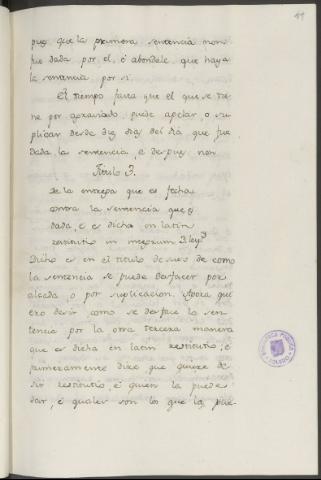 41
pues que la primera sentencia non
fue dada por el, é abondele que haya
la sentencia por si.
El tiempo fasta que el que se tie-
ne por agraviado puede apelar, o su-
plicar desde diez dias del dia que fue
dada la sentencia, é despues non
Titulo 3.
De la entrega que es fecha
contra la sentencia que es
dada, é es dicha en latin
restitutio in integrum 3 leyes
Dicho es en el titulo de suso de como
la sentencia se puede desfacer por
alzada, o por suplicacion. Agora que-
ero decir como se desface la sen-
tencia por la otra tercera manera
que es dicha en latin restitutio; é
primeramente dice que quiere de-
sir restitutio, é quien la puede
dar, é quales son los que la pue-
BIBLIOTECA PUBLICA
TOLEDO